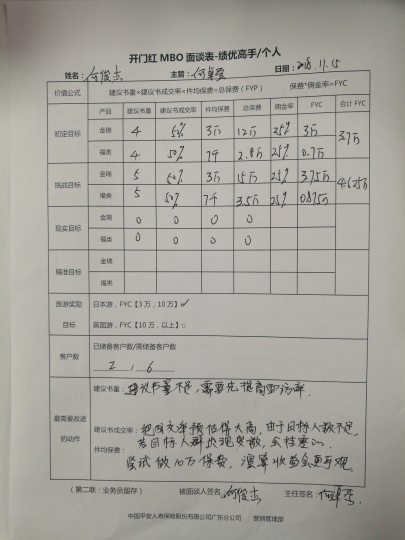 开门红 MBO 面谈表-绩优高手/个人
姓名：何俊杰 主管：何卓 日期：2018.11.15
价值公式 建议书量×建议书成交率×件均保费=总保费（FYP） 保费*佣金率=FYC
产品 建议书量 建议书成交率 件均保费 总保费 佣金率 FYC 合计 FYC
初定目标 金瑞 4 50% 3万 12万 25% 3万 3.7万
福类 4 50% 7千 2.8万 25% 0.7万
挑战目标 金瑞 5 50% 3万 15万 25% 3.75万 4.625万
福类 5 50% 7千 3.5万 25% 0.875万
现实目标 金瑞 0 0 0 0
福类 0 0 0 0
精准目标 金瑞
福类
旅游奖励 日本游，FYC【3万，10万】✓
目标 英国游，FYC【10万，以上】□
客户数 已储备客户数/需储备客户数
2 , 6
最需要改进的动作
建议书量：建议书量不足，需要先提高面访率.
建议书成交率：把成交率预估得太高，由于目标人数不足，
件均保费：若目标人群出现变数，会性
尝试做10万保费，演算收益会更可观.
（第二联：业务员留存） 被面谈人签名：何俊杰 主任签名：何卓
中国平安人寿保险股份有限公司广东分公司 营销管理部